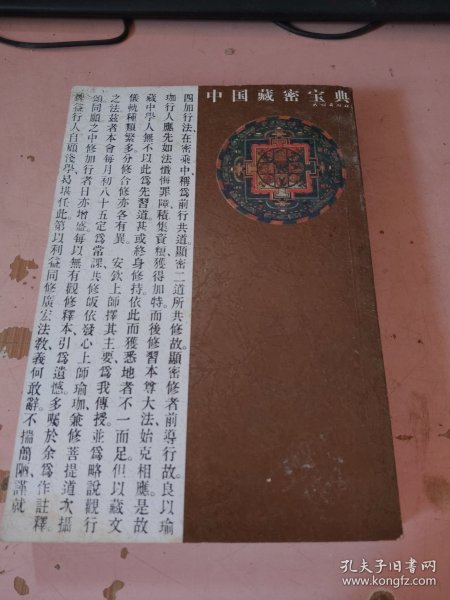 中国藏密宝典
四加行法在密乘中稱爲前行共道。顯密二道所共修故。顯密修者前導行故。良以瑜
珈行人應先如法懺悔罪障積集資糧獲得加持。而後修習本尊大法始克相應。是故
藏中學人無不以此爲先習道。甚或終身修持。依此而獲悉地者不一而足。但以藏文
儀軌種類繁多分修合修亦各有異。 安欽上師擇其主要。爲我傳授。並爲略說觀行
之法。茲者本會每月初八十五定爲常課。共修皈依發心上師瑜珈。兼修菩提道次攝
頌。同願之中修加行者日亦增盛。每以無有觀修釋本。引爲遺憾。多囑於余爲作註釋。
益行人。自顧淺學。曷堪任此。第以利益同修廣宏法教。義何敢辭。不揣簡陋。謹就
孔夫子旧书网
www.kongfz.com